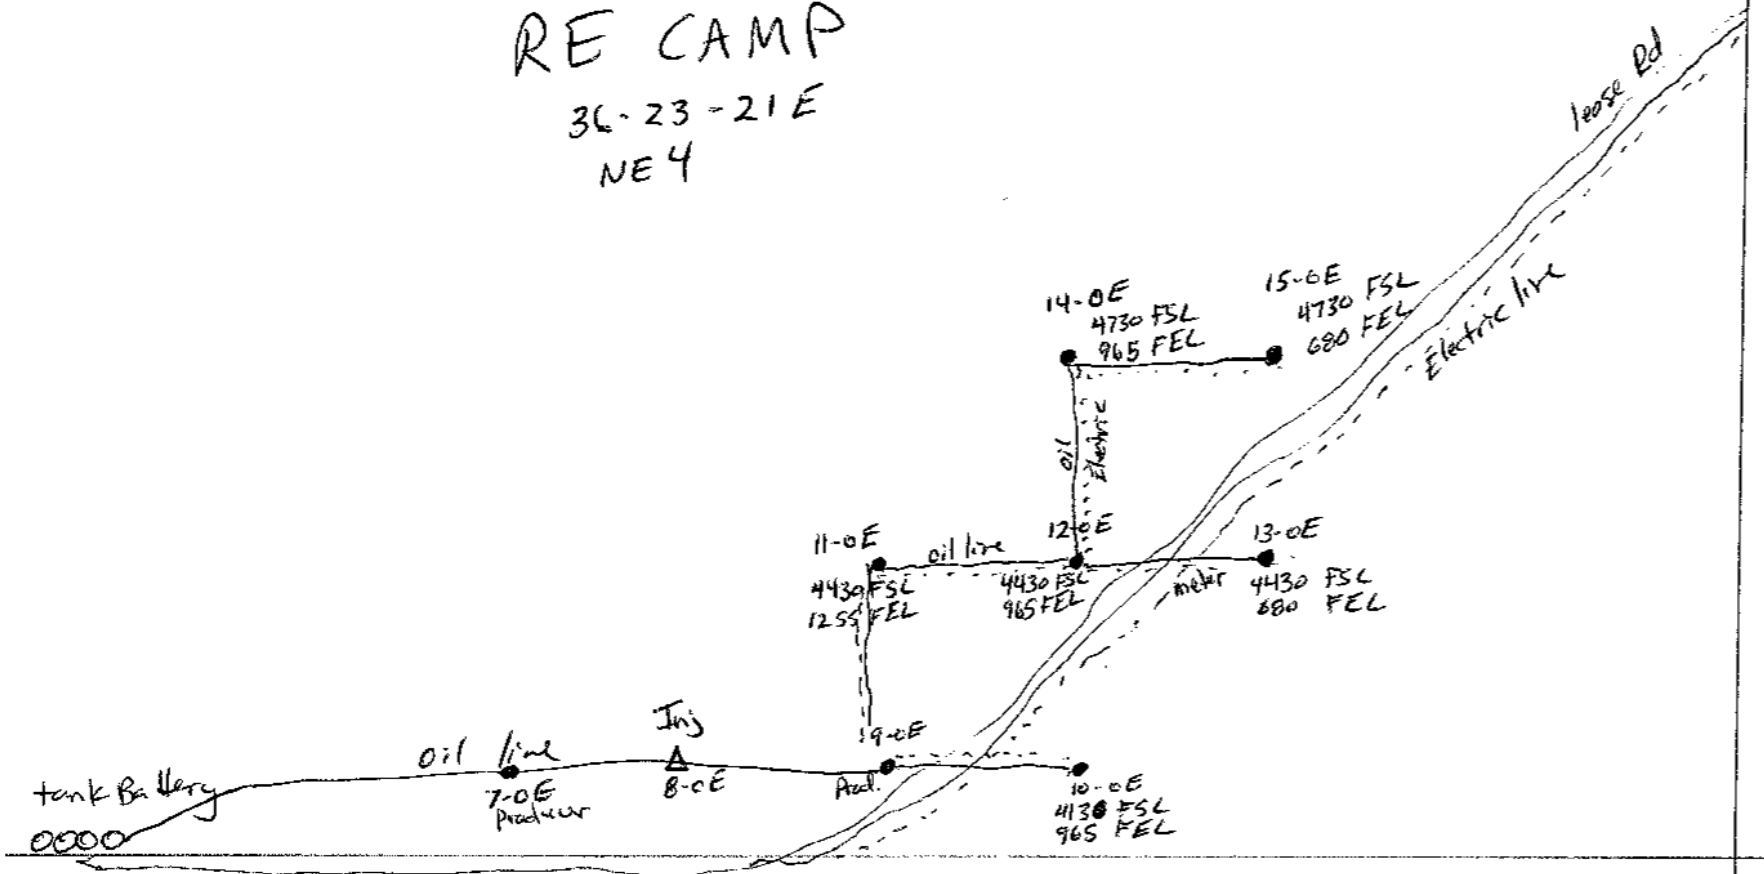 RE CAMP
36-23-21E
NE 4
lease Rd
Electric line
14-OE
4730 FSL
965 FEL
15-OE
4730 FSL
680 FEL
oil
Electric
11-OE
4430 FSL
1255 FEL
oil line
12-OE
4430 FSL
965 FEL
meter
13-OE
4430 FSL
680 FEL
tank Battery
oil line
7-OE
Producer
Inj
8-OE
9-OE
Prod.
10-OE
4130 FSL
965 FEL